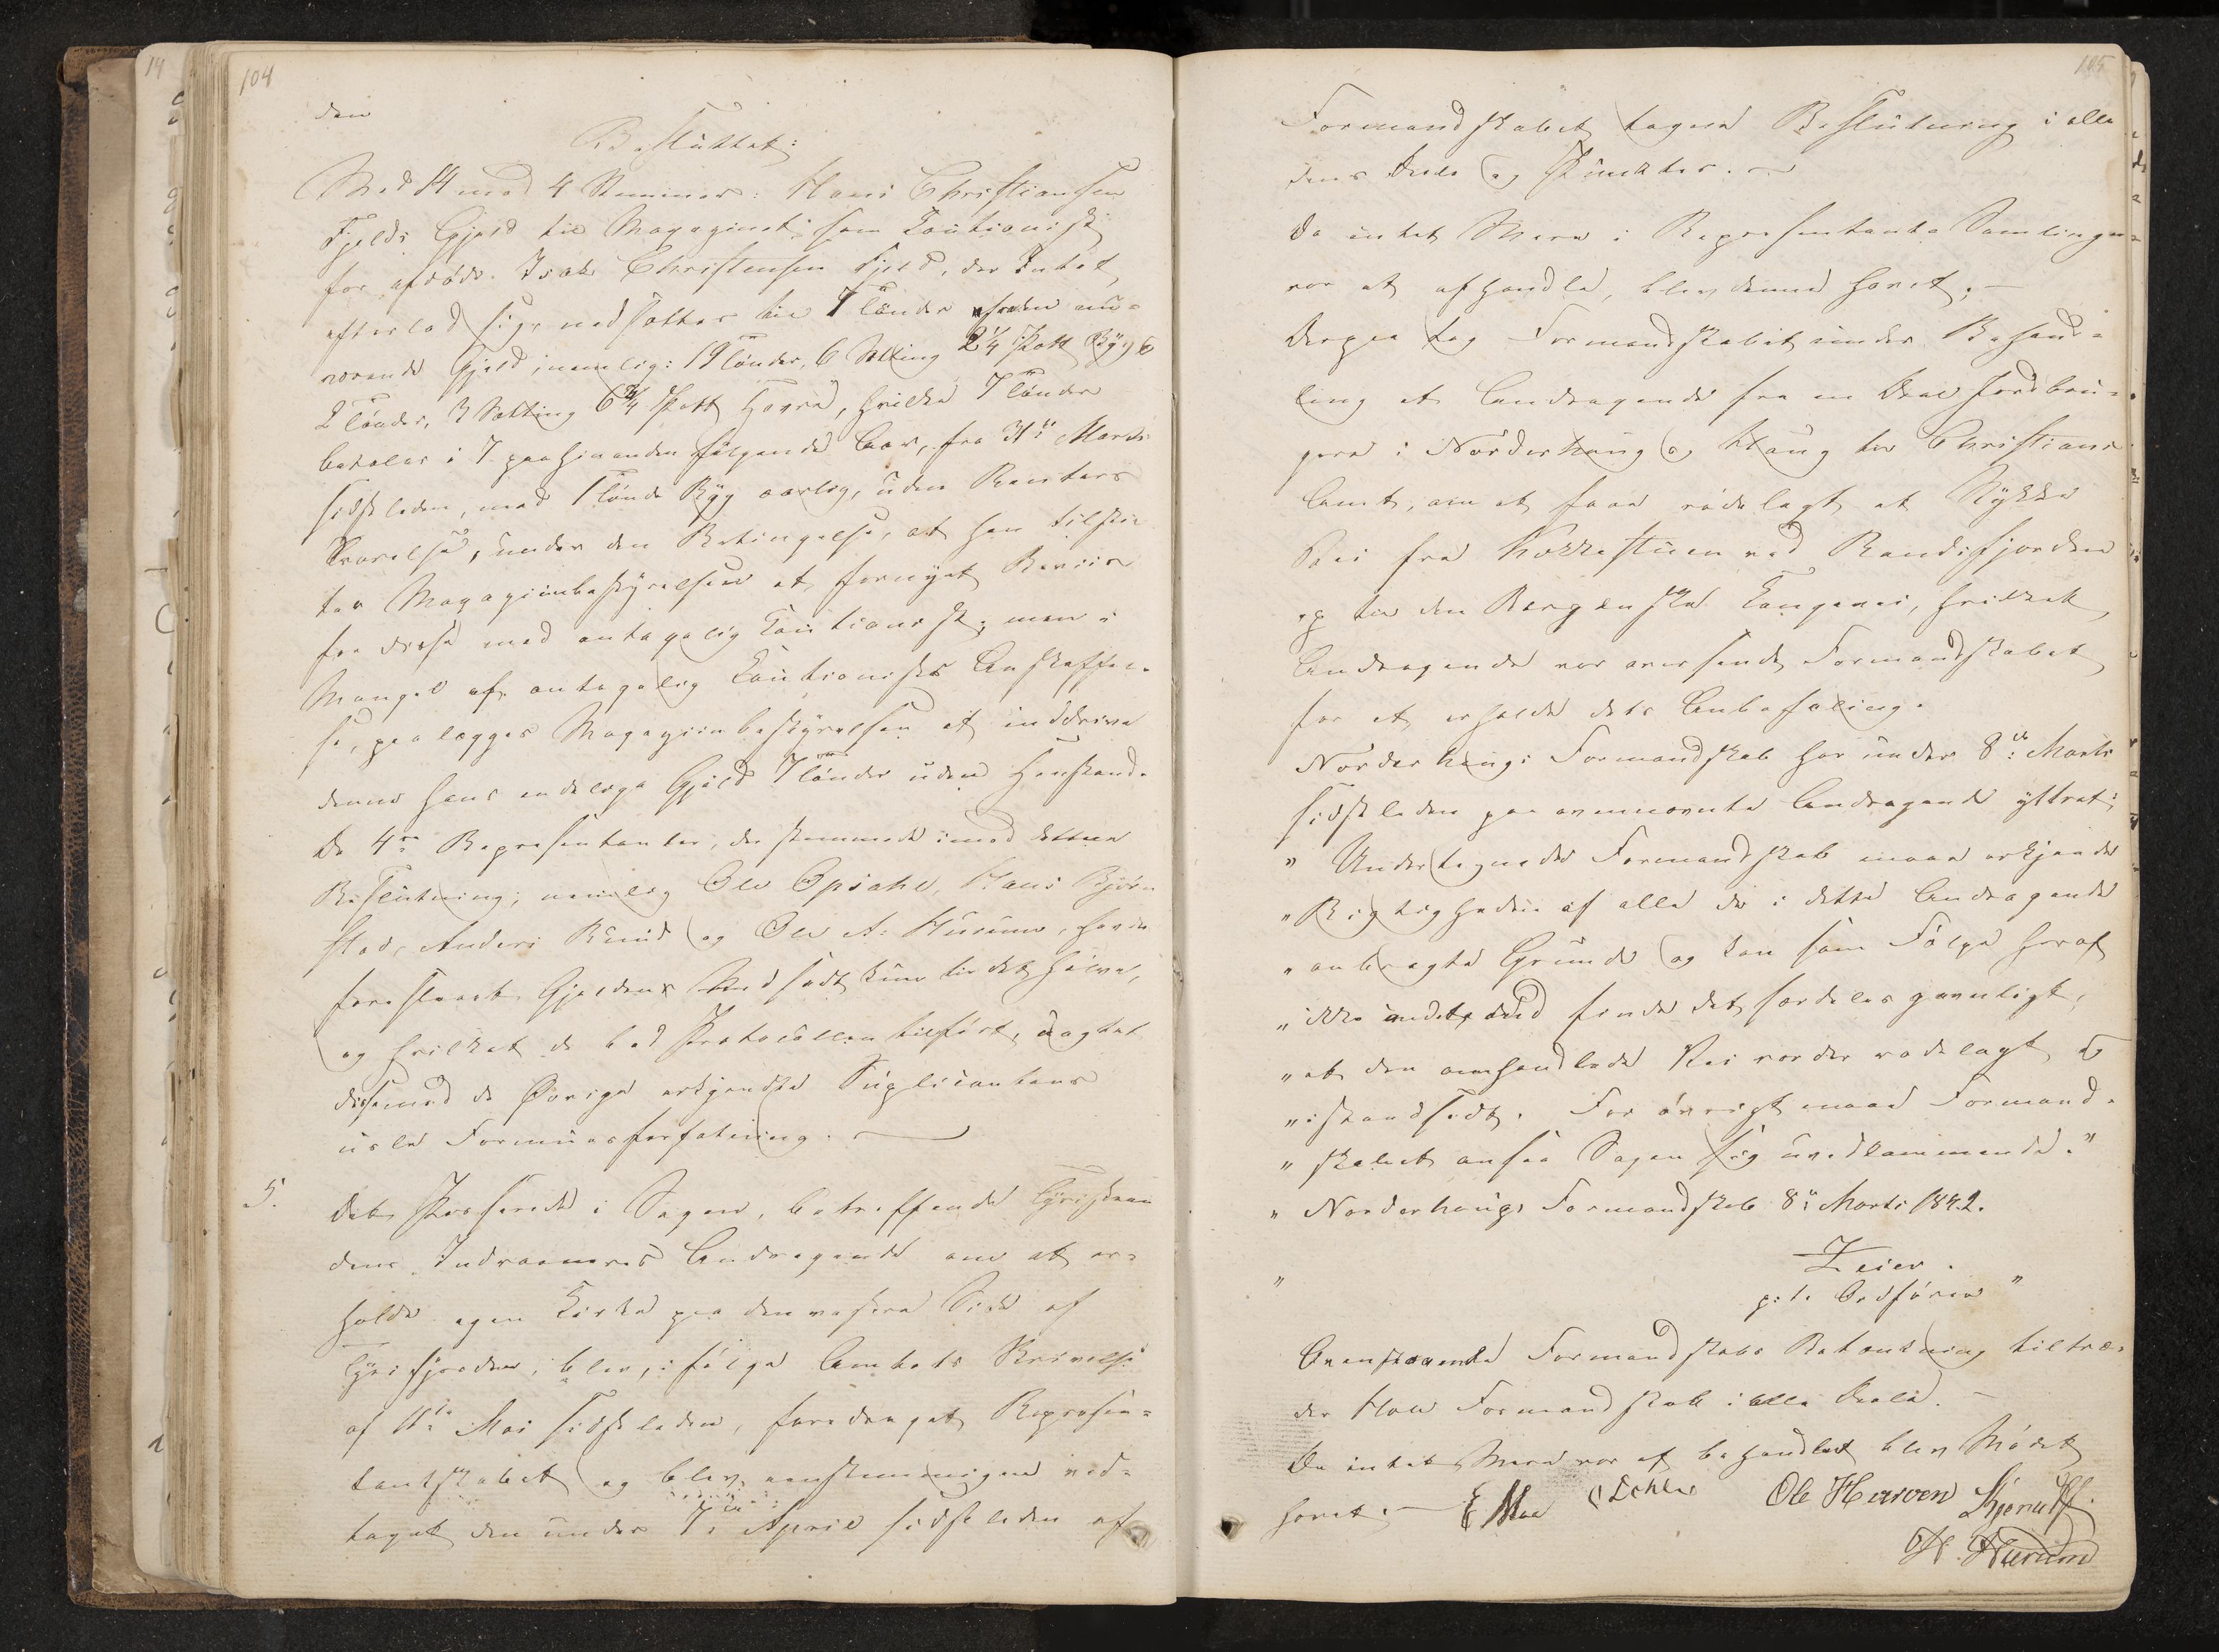 104
den
Besluttet:
Med 14 mod 4 Stemmer: Hans Christiansen
Fjelds Gjeld til Magazinet som Cautionist
for afdøde Isak Christensen Fjeld, der Intet
efterlod sig, nedsættes til 7 Tønder af den nu-
værende Gjeld, nemlig: 19 Tønder, 6 Setting 2 1/4 Pott Byg &
2 Tønder, 3 Setting 6 3/4 Pott Havre, hvilke 7 Tønder
betales i 7 paa hinanden følgende Aar, fra 31te Marts
sidstleden, med 1 Tønde Byg aarlig, uden Renters
Svarelse, under den Betingelse, at han tilstil-
ler Magazinbestyrelsen et fornyet Beviis
for disse med antagelig Cautionist; men i
Mangel af antagelig Cautionists Anskaffel-
se, paalægges Magaziinbestyrelsen at inddrive
denne hans endelige Gjeld 7 Tønder uden Henstand.
De 4re Repræsentanter, der stemmede imod denne
Beslutning, nemlig Ole Opsahl, Hans Bjørn
stad, Anders Bund og Ole A. Hurum, havde
foreslaaet Gjelden nedsadt kun til det halve,
og hvilket de bad Protocollen tilført, uagtet
disse med de Øvrige erkjendte Suplicantens
usle Formuesforfatning.
5.
Det Passerede i Sagen, betreffende Tyristran
dens Indvaaneres Andragende om at er-
holde egen Kirke paa den vestre Side af
Tyrifjorden, blev, ifølge Amtets Skrivelse
af 11te Mai sidstleden, foredraget Repræsen-
tantskabet og blev eenstemmigen ved-
taget den under 7de April sidstleden af
105
Formandskabet tagne Beslutning i alle
dens Dele og Puncter.
Da intet Mere i Repræsentants Samlingen
var at afhandle, blev denne hævet.
Derpaa tog Formandskabet under Behand-
ling et Andragende fra en Deel Jordbru-
gere i Norderhoug og Haug til Christians
Amt, om at faae rodelagt et Stykke
Vei fra Kokkestuen ved Randsfjorden
op til den Bergenske Kongevei, hvilket
Andragende var oversendt Formandskabet
for at erholde dets Anbefaling.
Norderhougs Formandskab har under 8de Marts
sidstleden paa ovennævnte Andragende yttret:
" Undertegnede Formandskab maae erkjende
" Rigtigheden af alle de i dette Andragende
" anbragte Grunde og kan som Følge heraf
" ikke andet end finde det særdeles gavnligt,
" at den omhandlede Vei vorder rodelagt &
" istandsadt. For øvrigt maae Formand-
" skabet ansee Sagen sig uvedkommende."
" Norderhougs Formandskab 8de Marts 1842.
" Zeier.
p: t: Ordfører "
Ovenstaaende Formandskabs Betænkning tiltræ-
der Hole Formandskab i alle Dele.
Da intet Mere var at behandlet blev Mødet
hævet. E Moe Ole Hurven Skjerulff.
H. Hurum